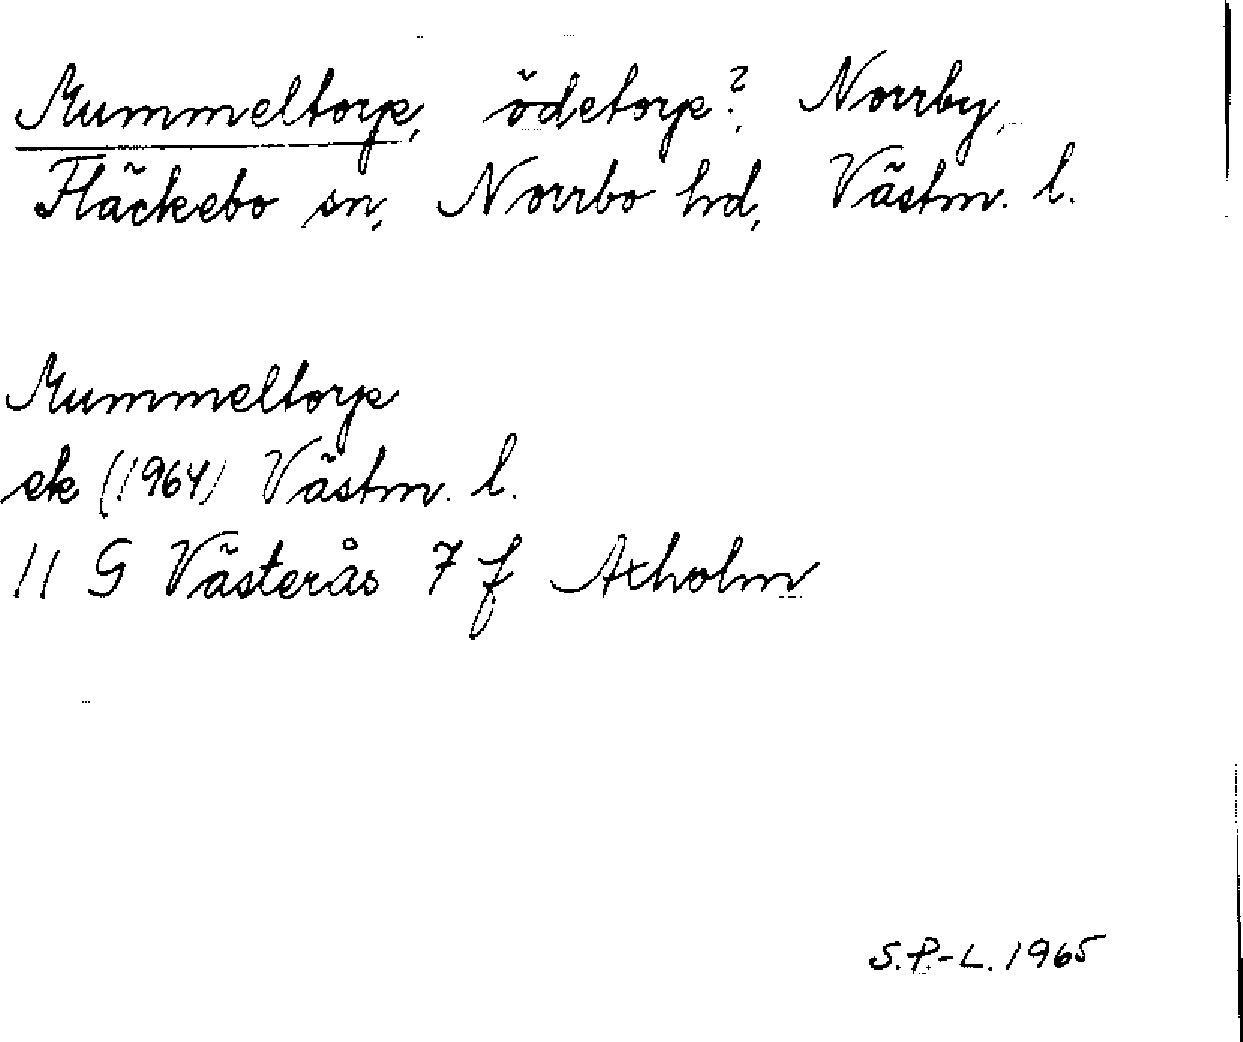 Mummeltorp, ödetorp?, Norrby,
Fläckebo sn, Norrbo hd, Västm. l.
Mummeltorp
ek (1964) Västm. l.
11 G Västerås 7 f Axholm
S.P.-L. 1965